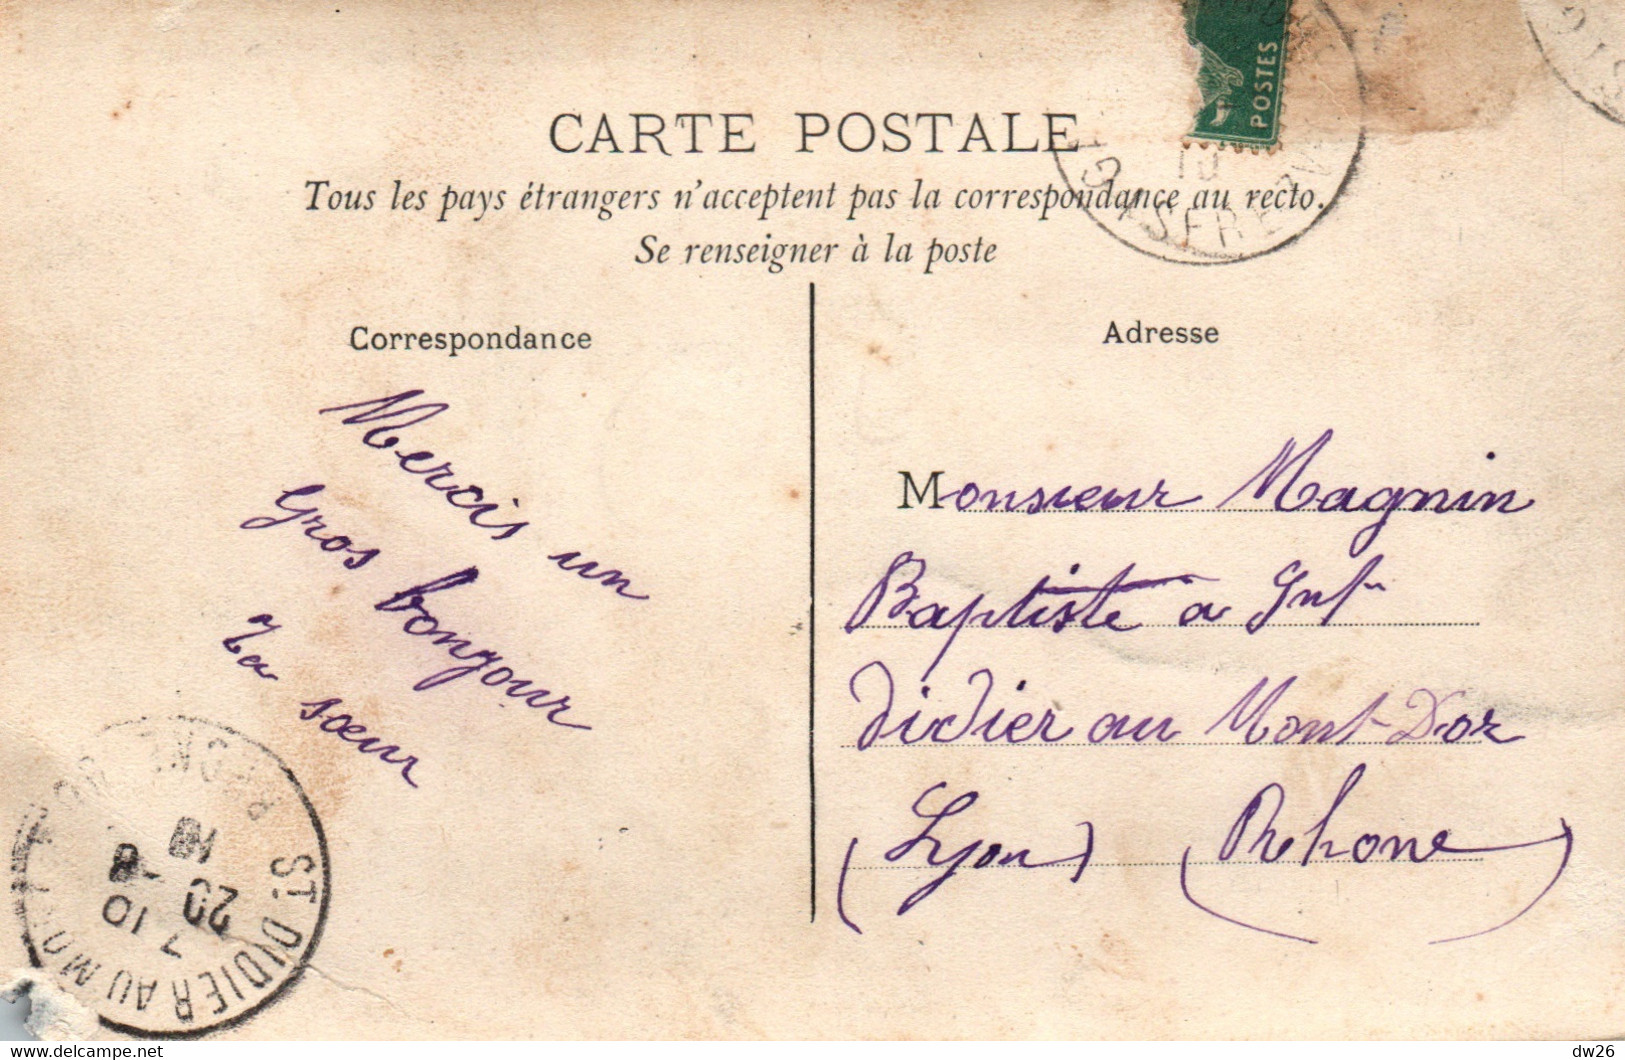 POSTES
CARTE POSTALE
Tous les pays étrangers n'acceptent pas la correspondance au recto.
Se renseigner à la poste
Correspondance
Mercis un
Gros bonjour
Ta sœur
Adresse
Monsieur Magnin
Baptiste a Snt
Didier au Mont D'or
(Lyon) (Rehone)
ST. DIDIER AU MONT D'OR RHONE
7 10
20
8
10
delcampe.net
dw26